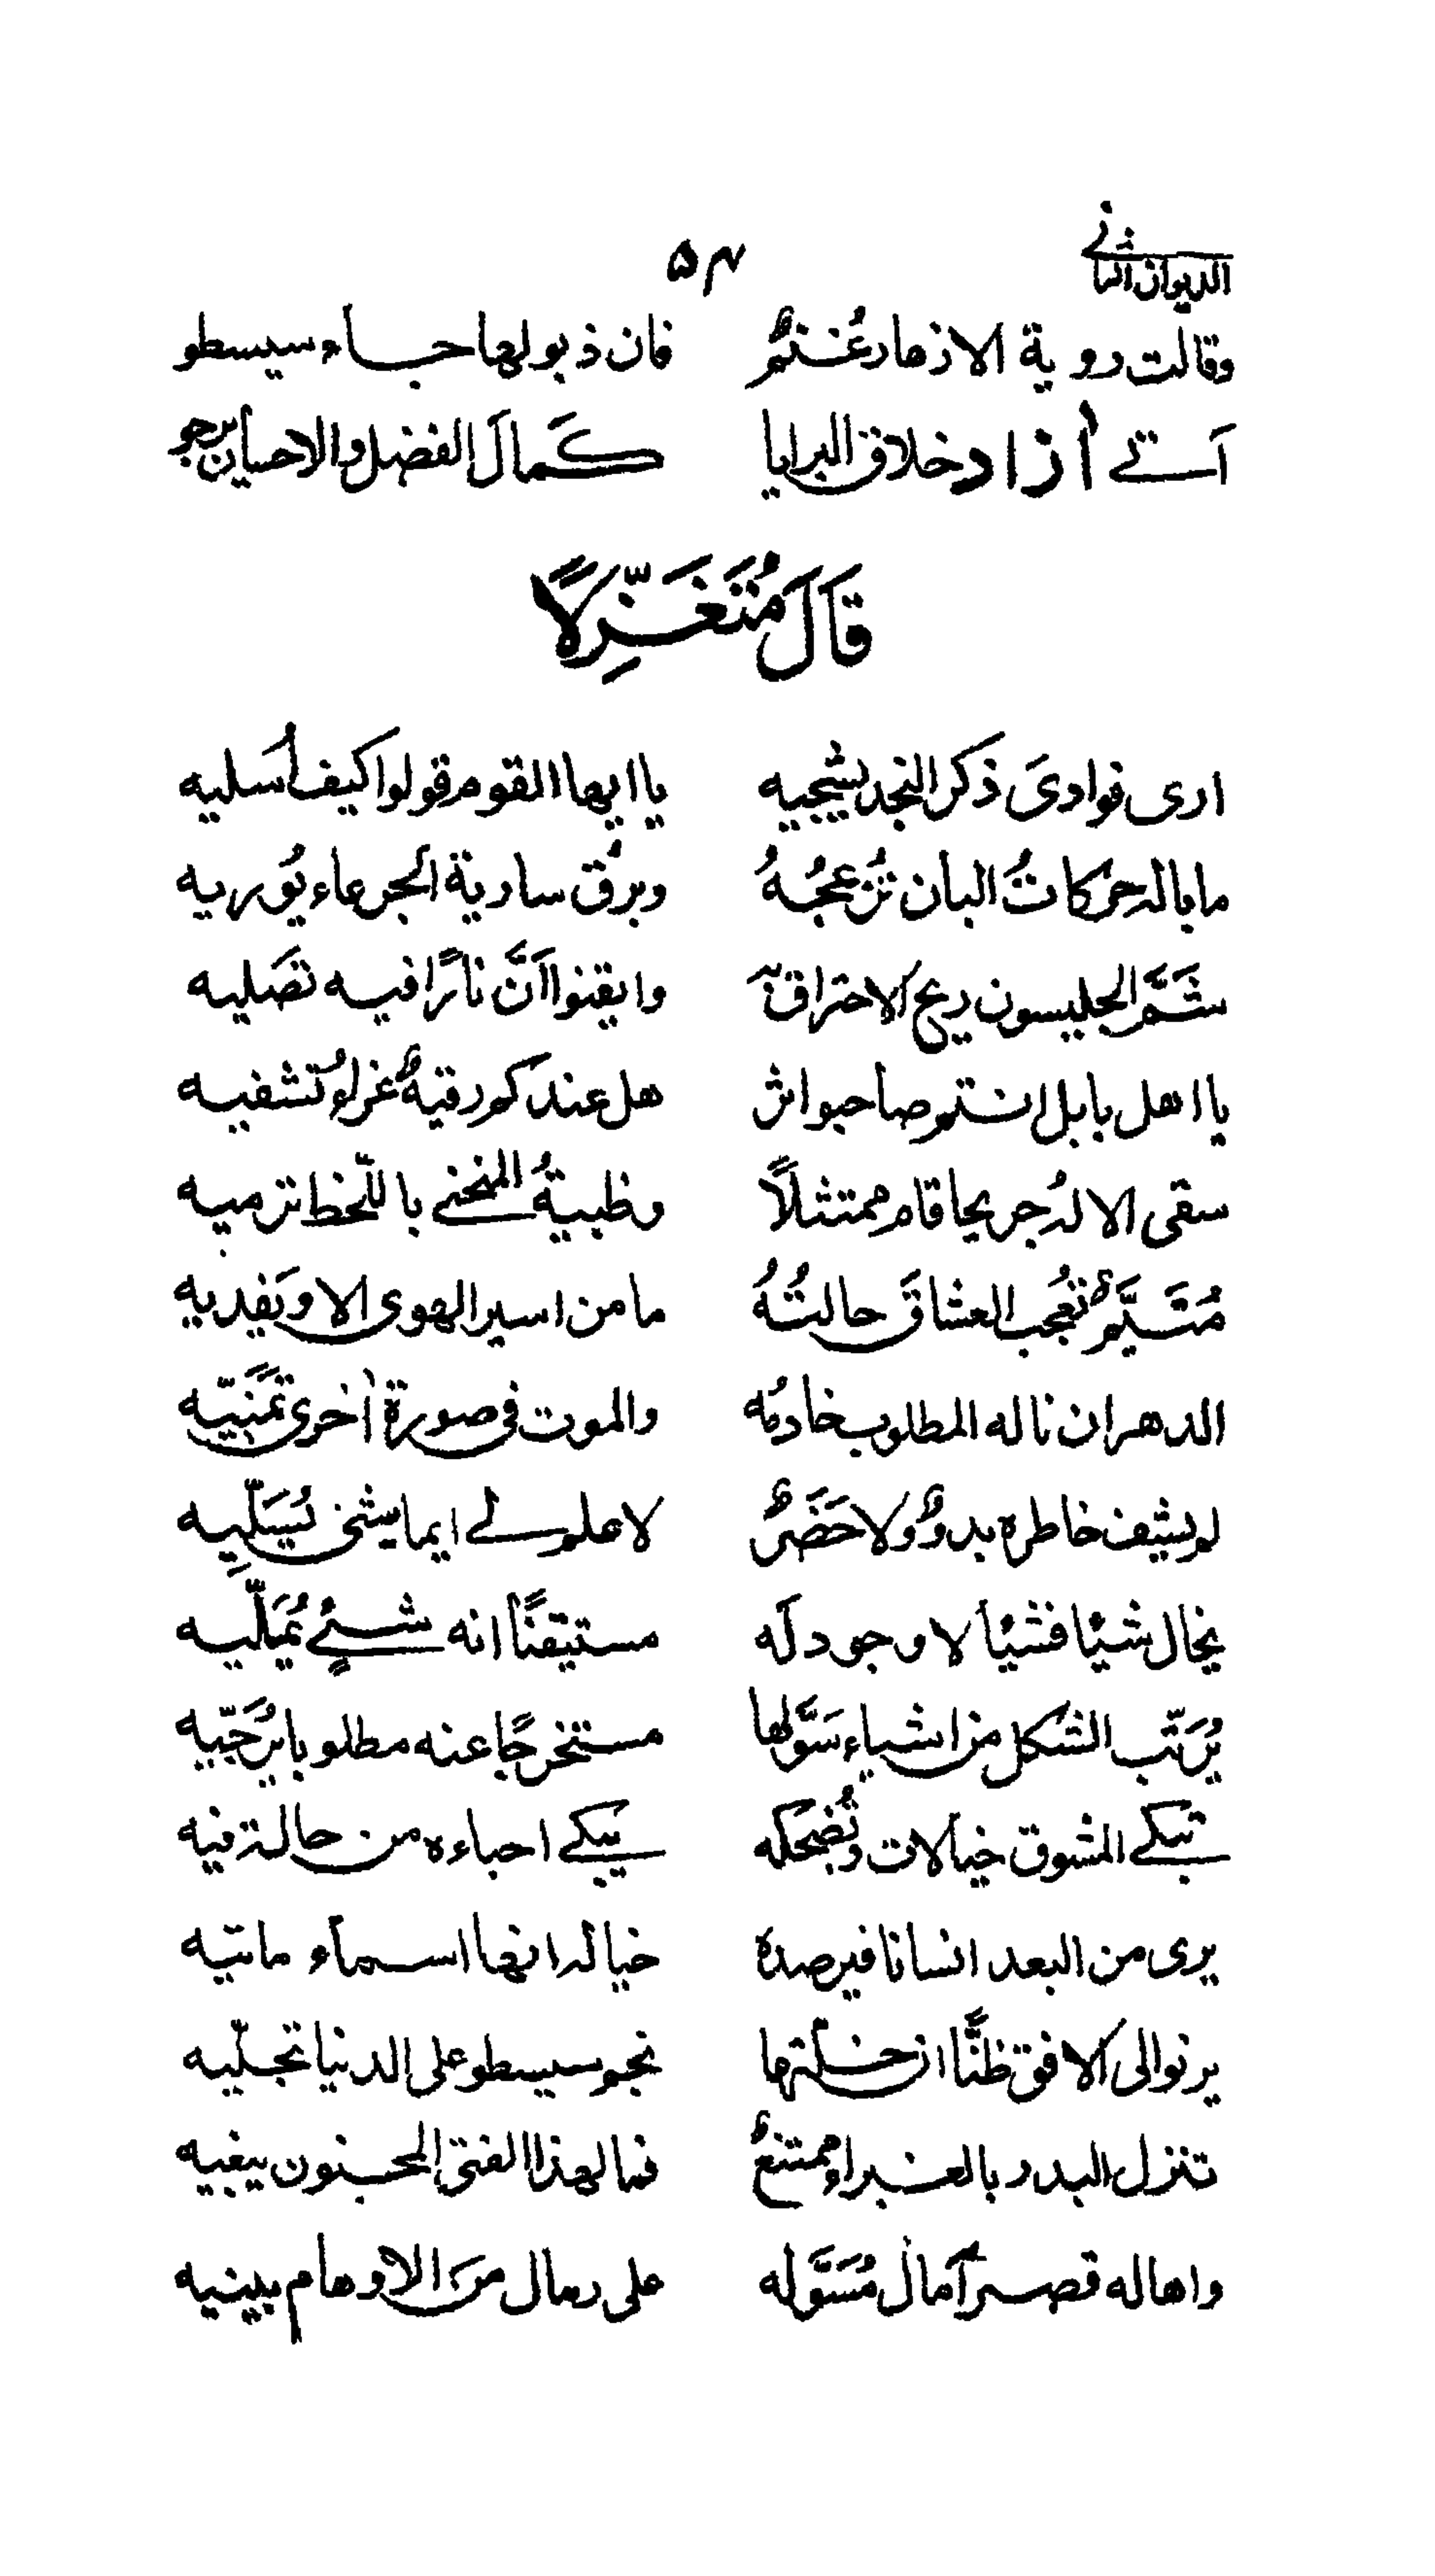 الديوان الثاني
۵۴
وقالت روية الازهار غُنمٌ فان ذبولها جاء سيسطو
آستے أزاد خلاق البرايا كَمالَ الفضل والاحسان يرجو
قَالَ مُتَغَزِّلًا
ارى فوادىَ ذكر النجد يشجيه يا ايها القوم قولوا كيف أُسَليه
ما باله حركاتُ البان تُزعجُهُ وبرقُ سارية الجرعاء يُوريه
شَمَّ الجليسون ريح الاحتراق به وايقنوا اَنَّ نارًا فيه تصَليه
يا اهل بابل انتم صاحبوا اثر هل عندكم رقيةٌ غراءُ تُشفيه
سقى الاله جريحا قام ممتثلًا وظبيةُ المنحنى باللّحظ ترميه
مُتَيَّمٌ تعُجب العشاقَ حالتُهُ ما من اسير الهوى الا ويَفديه
الدهر ان ناله المطلوب خادمُه والموت فى صورة اُخرى تمَنّيّه
لم يشف خاطره بدوٌ ولا حَضَرٌ لا علم لے ايما يشئ يُسَلِّيه
يخال شيئا فشيئا لا وجود لَه مستيقنًا انه شئٍ يُمَلّيه
يُرَتّب الشكل من اشياء سَوَّلها مستخرجًا عنه مطلوبا يُرَجّيه
تبكے المشوق خيالات وتُضحكه يبكے احباءه من حالة فيه
يرى من البعد انسانا فيرصده خياله انها اسماء ماتيه
يرنو الى الافق ظنًّا ان خلّتها نجم سيسطو على الدنيا تجلّيه
تنزل البدر بالغبراء ممتنعٌ فما لهذا الفتى المجنون يبغيه
واها له قصر آمال مُسَوَّله على رمال منَ الاوهام يبنيه